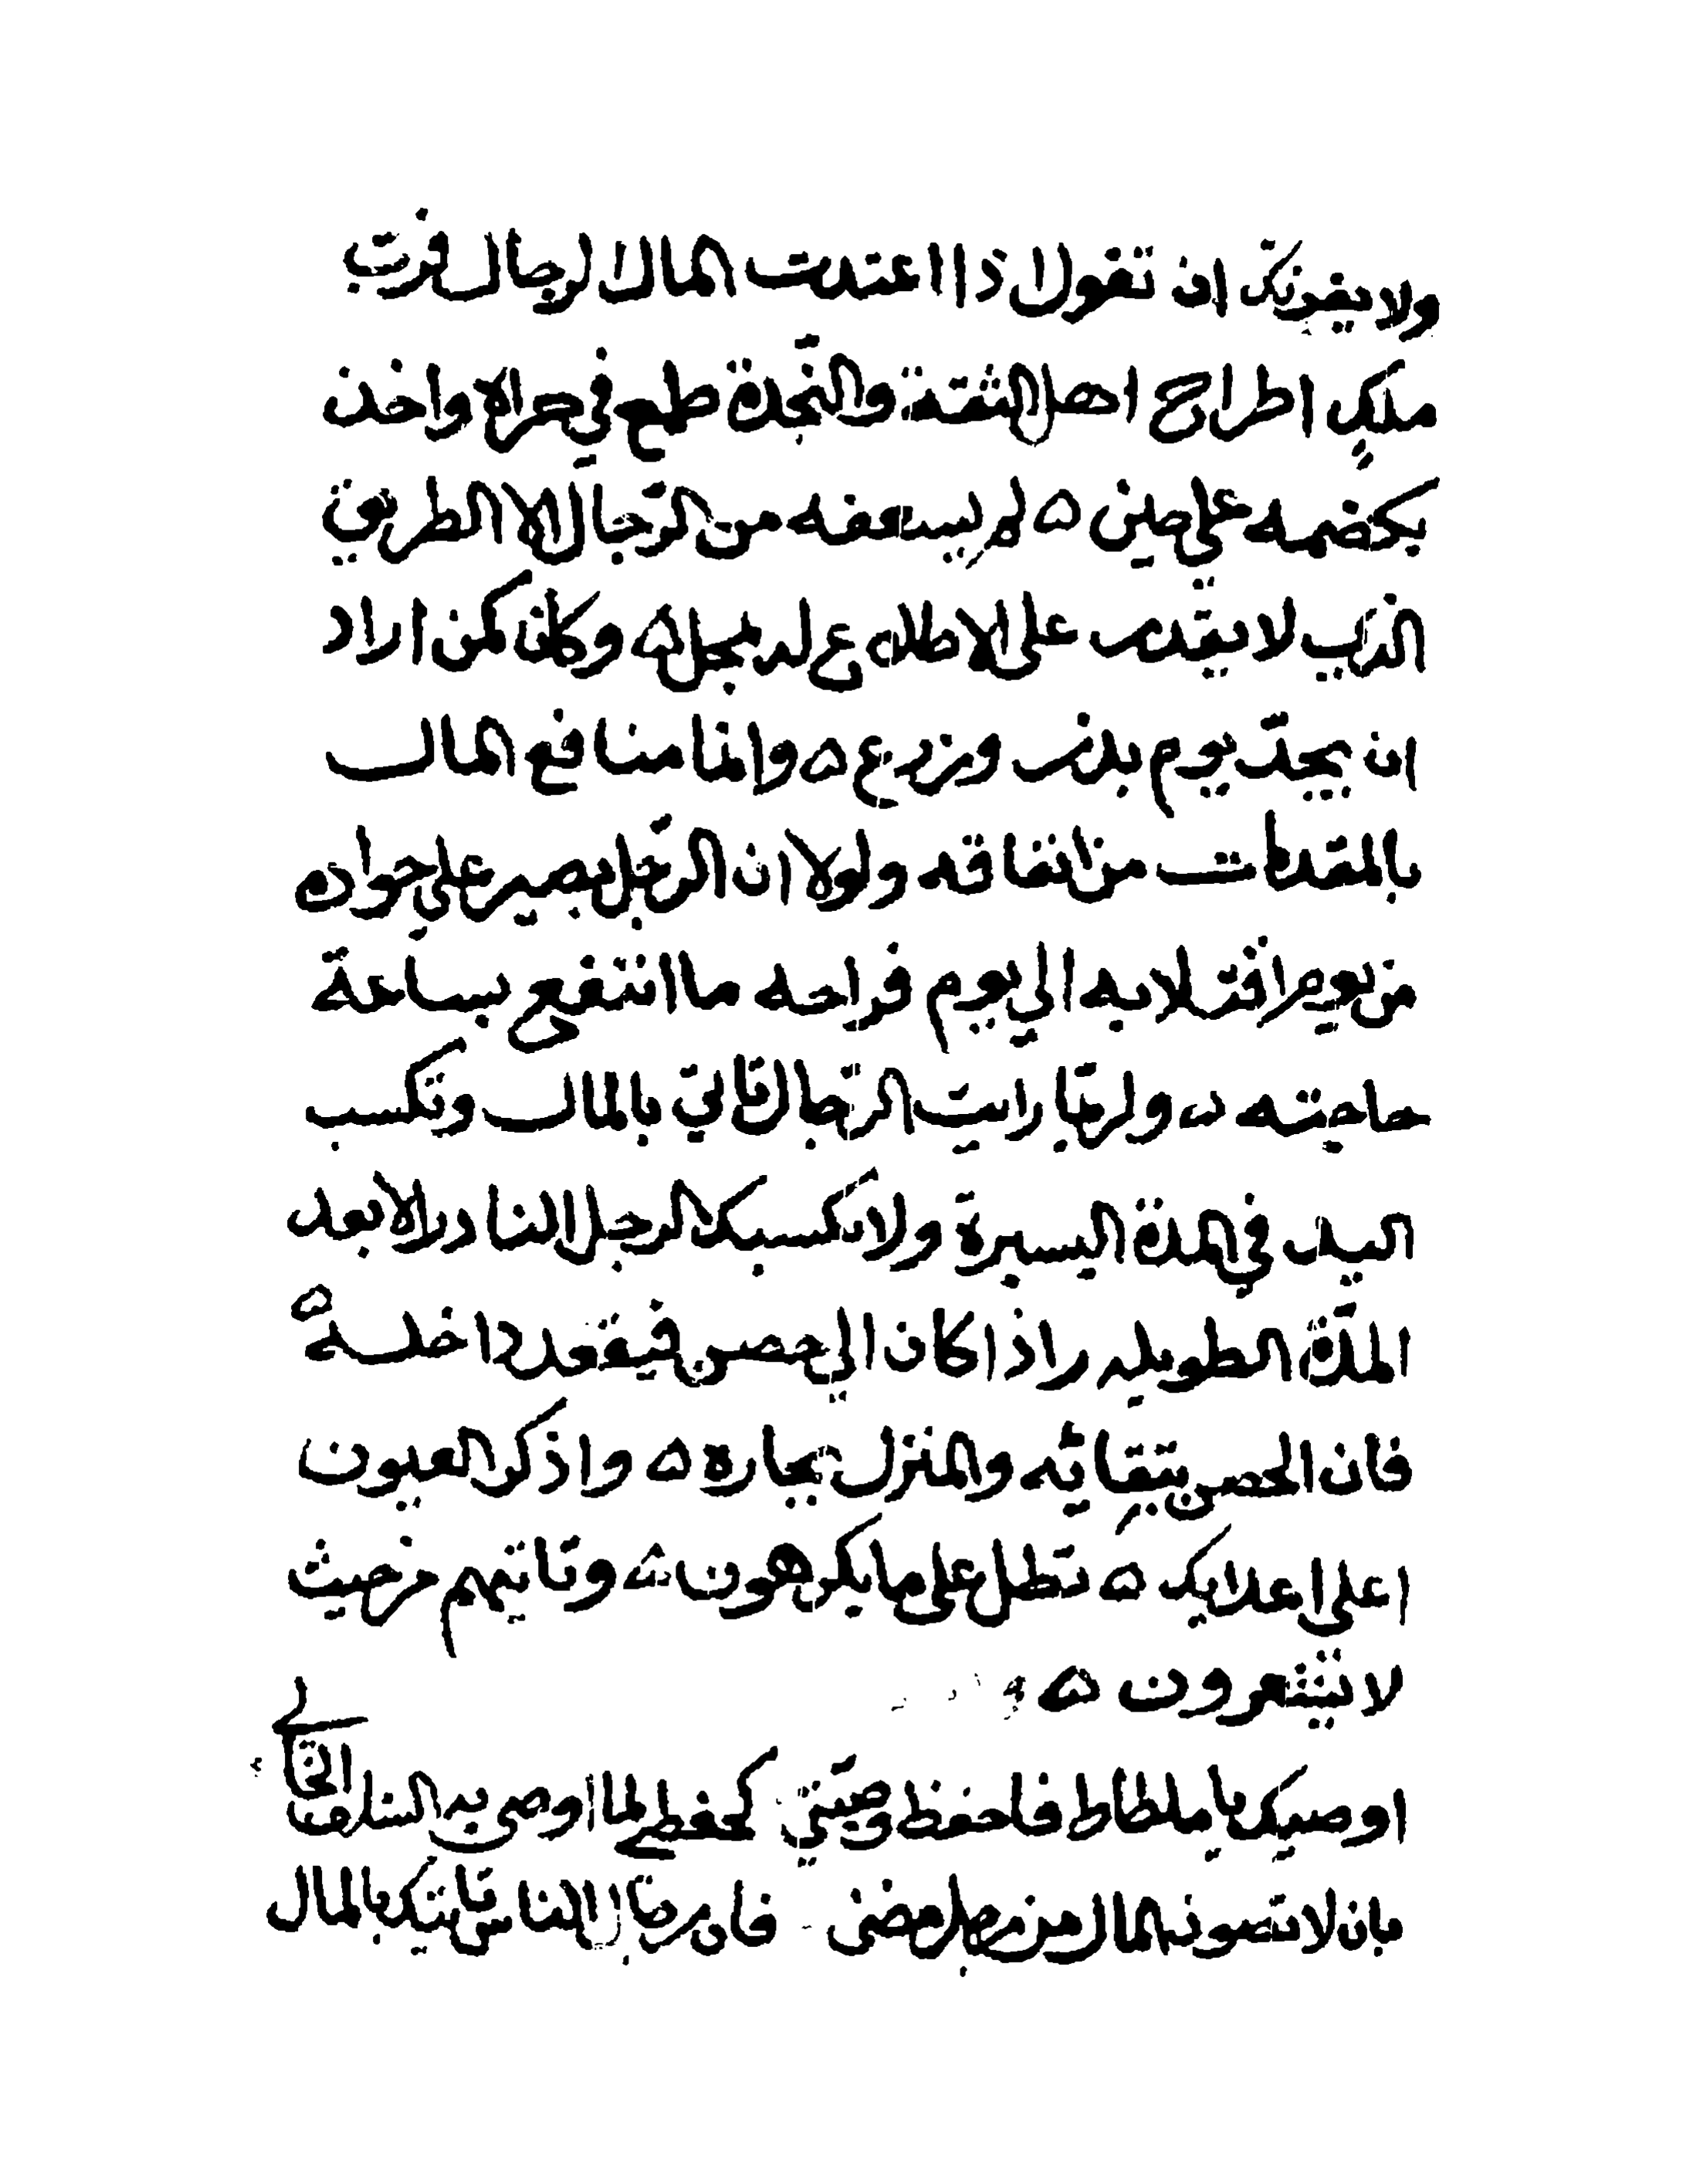 ولا يغرنك ان تقول اذا اعتدت المال الرجال فرب
ملك اطراح اهل الثقة والنجدة طمع في حراة واخذ
يكضمه على حين ۵ لم يسعفه من الرجال الا الطريق
الذي لا يقدر على الاطلاع لد بمجل ۵ وكان كمن اراد
ان يجد يوم بذر وزرع ۵ وانما منافع المال
بالمقدمات من انفاقه ولولا ان الرجل يصبر على جواده
من يوم افتلابه الي يوم فراحه ما انتفع بساعة
حاجته ولربما رايت الرجال تاتي بالمال وتكسب
اليد في المدة اليسيرة ولا تكسبك الرجل النادر الا بعد
المدة الطويله واذا كان الي حصن فيقعد داخلة
فان الحصن بثقاته والمنزل بجاره ۵ واذكر العيون
اعلي اعدايك ۵ تطل على ما يكرهون ۵ وتاتيهم من حيث
لا يشعرون ۵
اوصيك يا ملطاط فاحفظ وصيتي كحفظي لما اوصى به السلف الخالي
بان لا تصونه المال من رجل مضى فان رجال الناس تاتيك بالمال